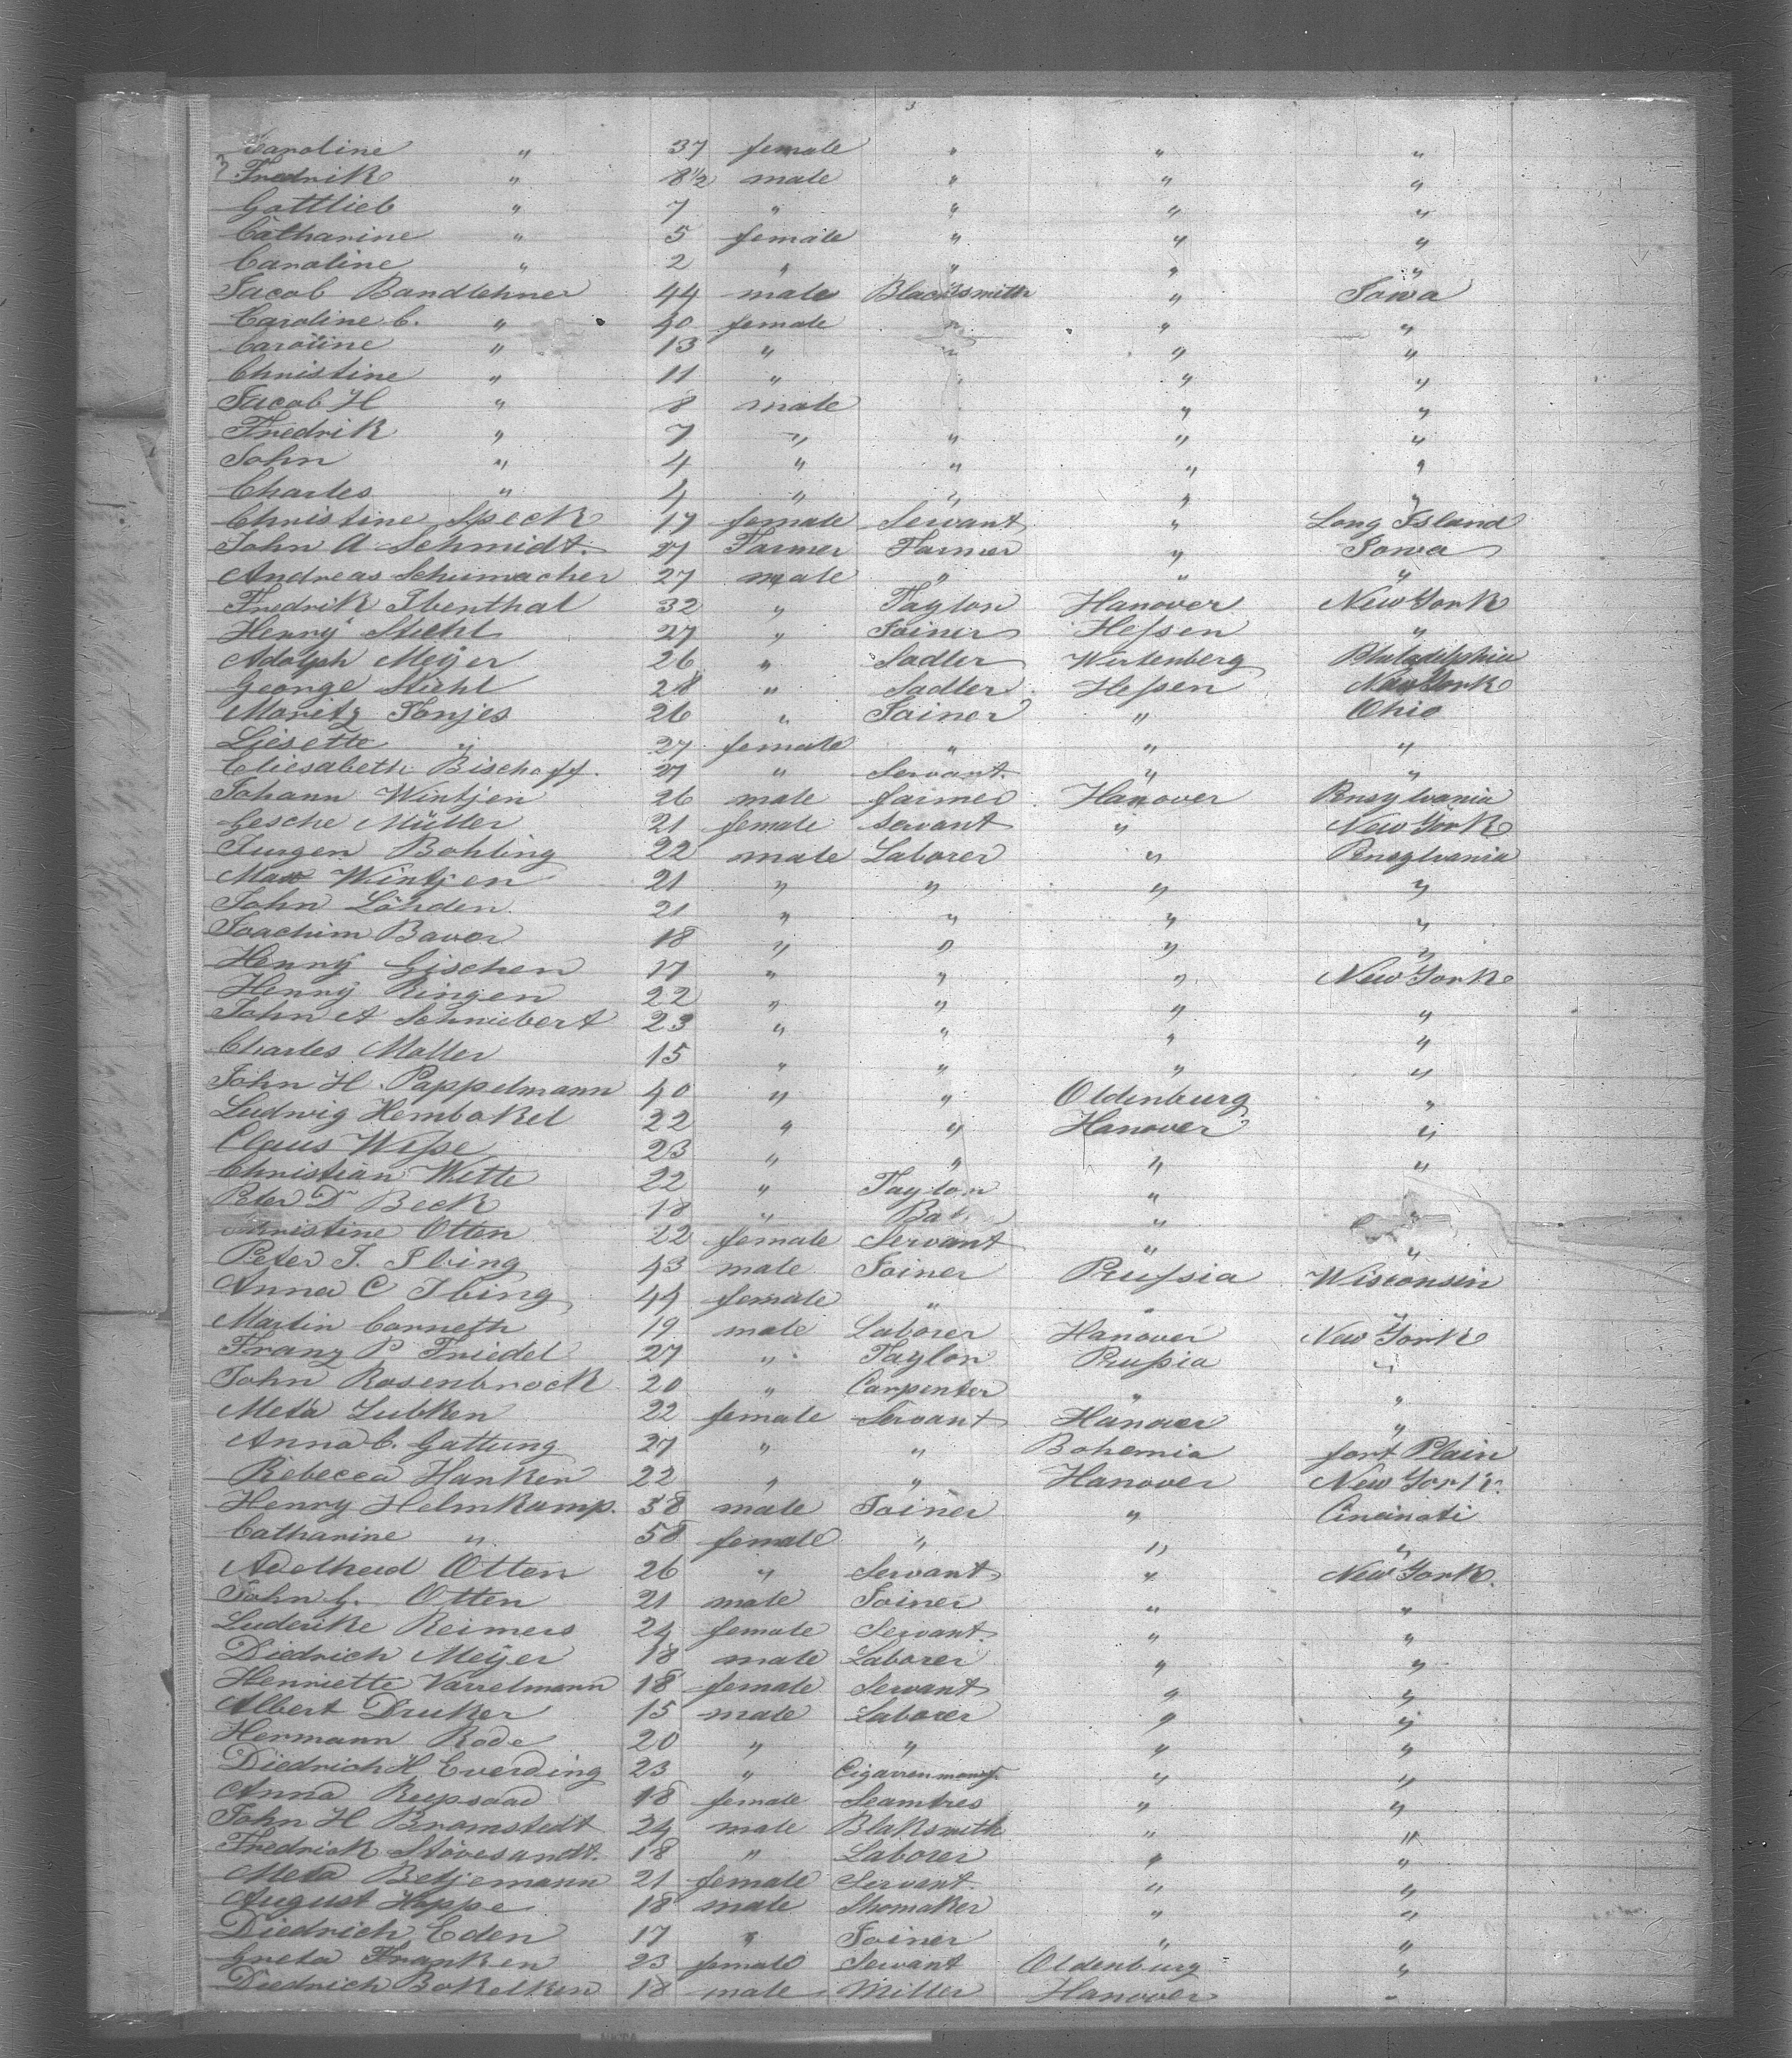 Caroline " 37 female " " "
Fredrik " 8½ male " " "
Gottlieb " 7 " " " "
Catharine " 5 female " " "
Caroline " 2 " " " "
Jacob Bandlehner 44 male Blacksmith " Iowa
Caroline C. " 40 female " " "
Caroline " 13 " " " "
Christine " 11 " " " "
Jacob H " 8 male " " "
Fredrik " 7 " " " "
John " 4 " " " "
Charles " 4 " " " "
Christine Speck 17 female Servant " Long Island
John A Schmidt. 27 Farmer Farmer " Iowa
Andreas Schumacher 27 male " " "
Fredrik Ibenthal 32 " Taylor Hanover New York
Henry Stiehl 27 " Joiner Hessen "
Adolph Meyer 26 " Sadler Wirtenberg Philadelphia
George Stiehl 28 " Sadler Hessen New York
Moritz Tonjes 26 " Joiner " Ohio
Liesette " 27 female " " "
Eliesabeth Bischoff. 27 " Servant. " "
Johann Wintjen 26 male farmer Hanover Pensylvania
Gesche Müller 21 female servant " New York
Jurgen Bohling 22 male Laborer " Pensylvania
Max Wintjen 21 " " " "
John Löhden 21 " " " "
Joachim Bavor 18 " " " "
Henry Gischen 17 " " " New York
Henry Ringen 22 " " " "
John A Schniebert 23 " " " "
Charles Moller 15 " " " "
John H. Pappelmann 40 " " Oldenburg "
Ludwig Hembokel 22 " " Hanover "
Claus Wesse 23 " " " "
Christian Wette 22 " Taylor " "
Peter D Beck 18 " " "
Christine Otten 22 female Servant " "
Peter J. Ibing 43 male Joiner Prussia Wisconsin
Anna C Ibing 44 female " " "
Martin Corneth 19 male Laborer Hanover New York
Franz P Friedel 27 " Taylor Prussia "
John Rosenbrock 20 " Carpenter " "
Meta Lubken 22 female Servant Hanover "
Anna C. Gattung 27 " " Bohemia fort Plain
Rebecca Hanken 22 " " Hanover New York.
Henry Helmkamp. 38 male Joiner " Cincinati
Catharine " 58 female " " "
Adelheid Otten 26 " Servant " New York.
John G. Otten 21 male Joiner " "
Luderike Reimers 24 female Servant. " "
Diedrich Meyer 18 male Laborer " "
Henriette Varrelmann 18 female Servant " "
Albert Druker 15 male Laborer " "
Hermann Rode 20 " " " "
Diedrich H. Everding 23 " Cigarrenmanf. " "
Anna 18 female Seamtres " "
John H Bromstedt 24 male Blaksmith " "
Fredrick Stövesandt. 18 " Laborer " "
Meta Betjemann 21 female Servant. " "
August Hoppe 18 male Shomaker " "
Diedrich Eden 17 " Joiner " "
Greta Franken 23 female Servant Oldenburg "
Diedrich Bokelken 18 male Miller Hanover "